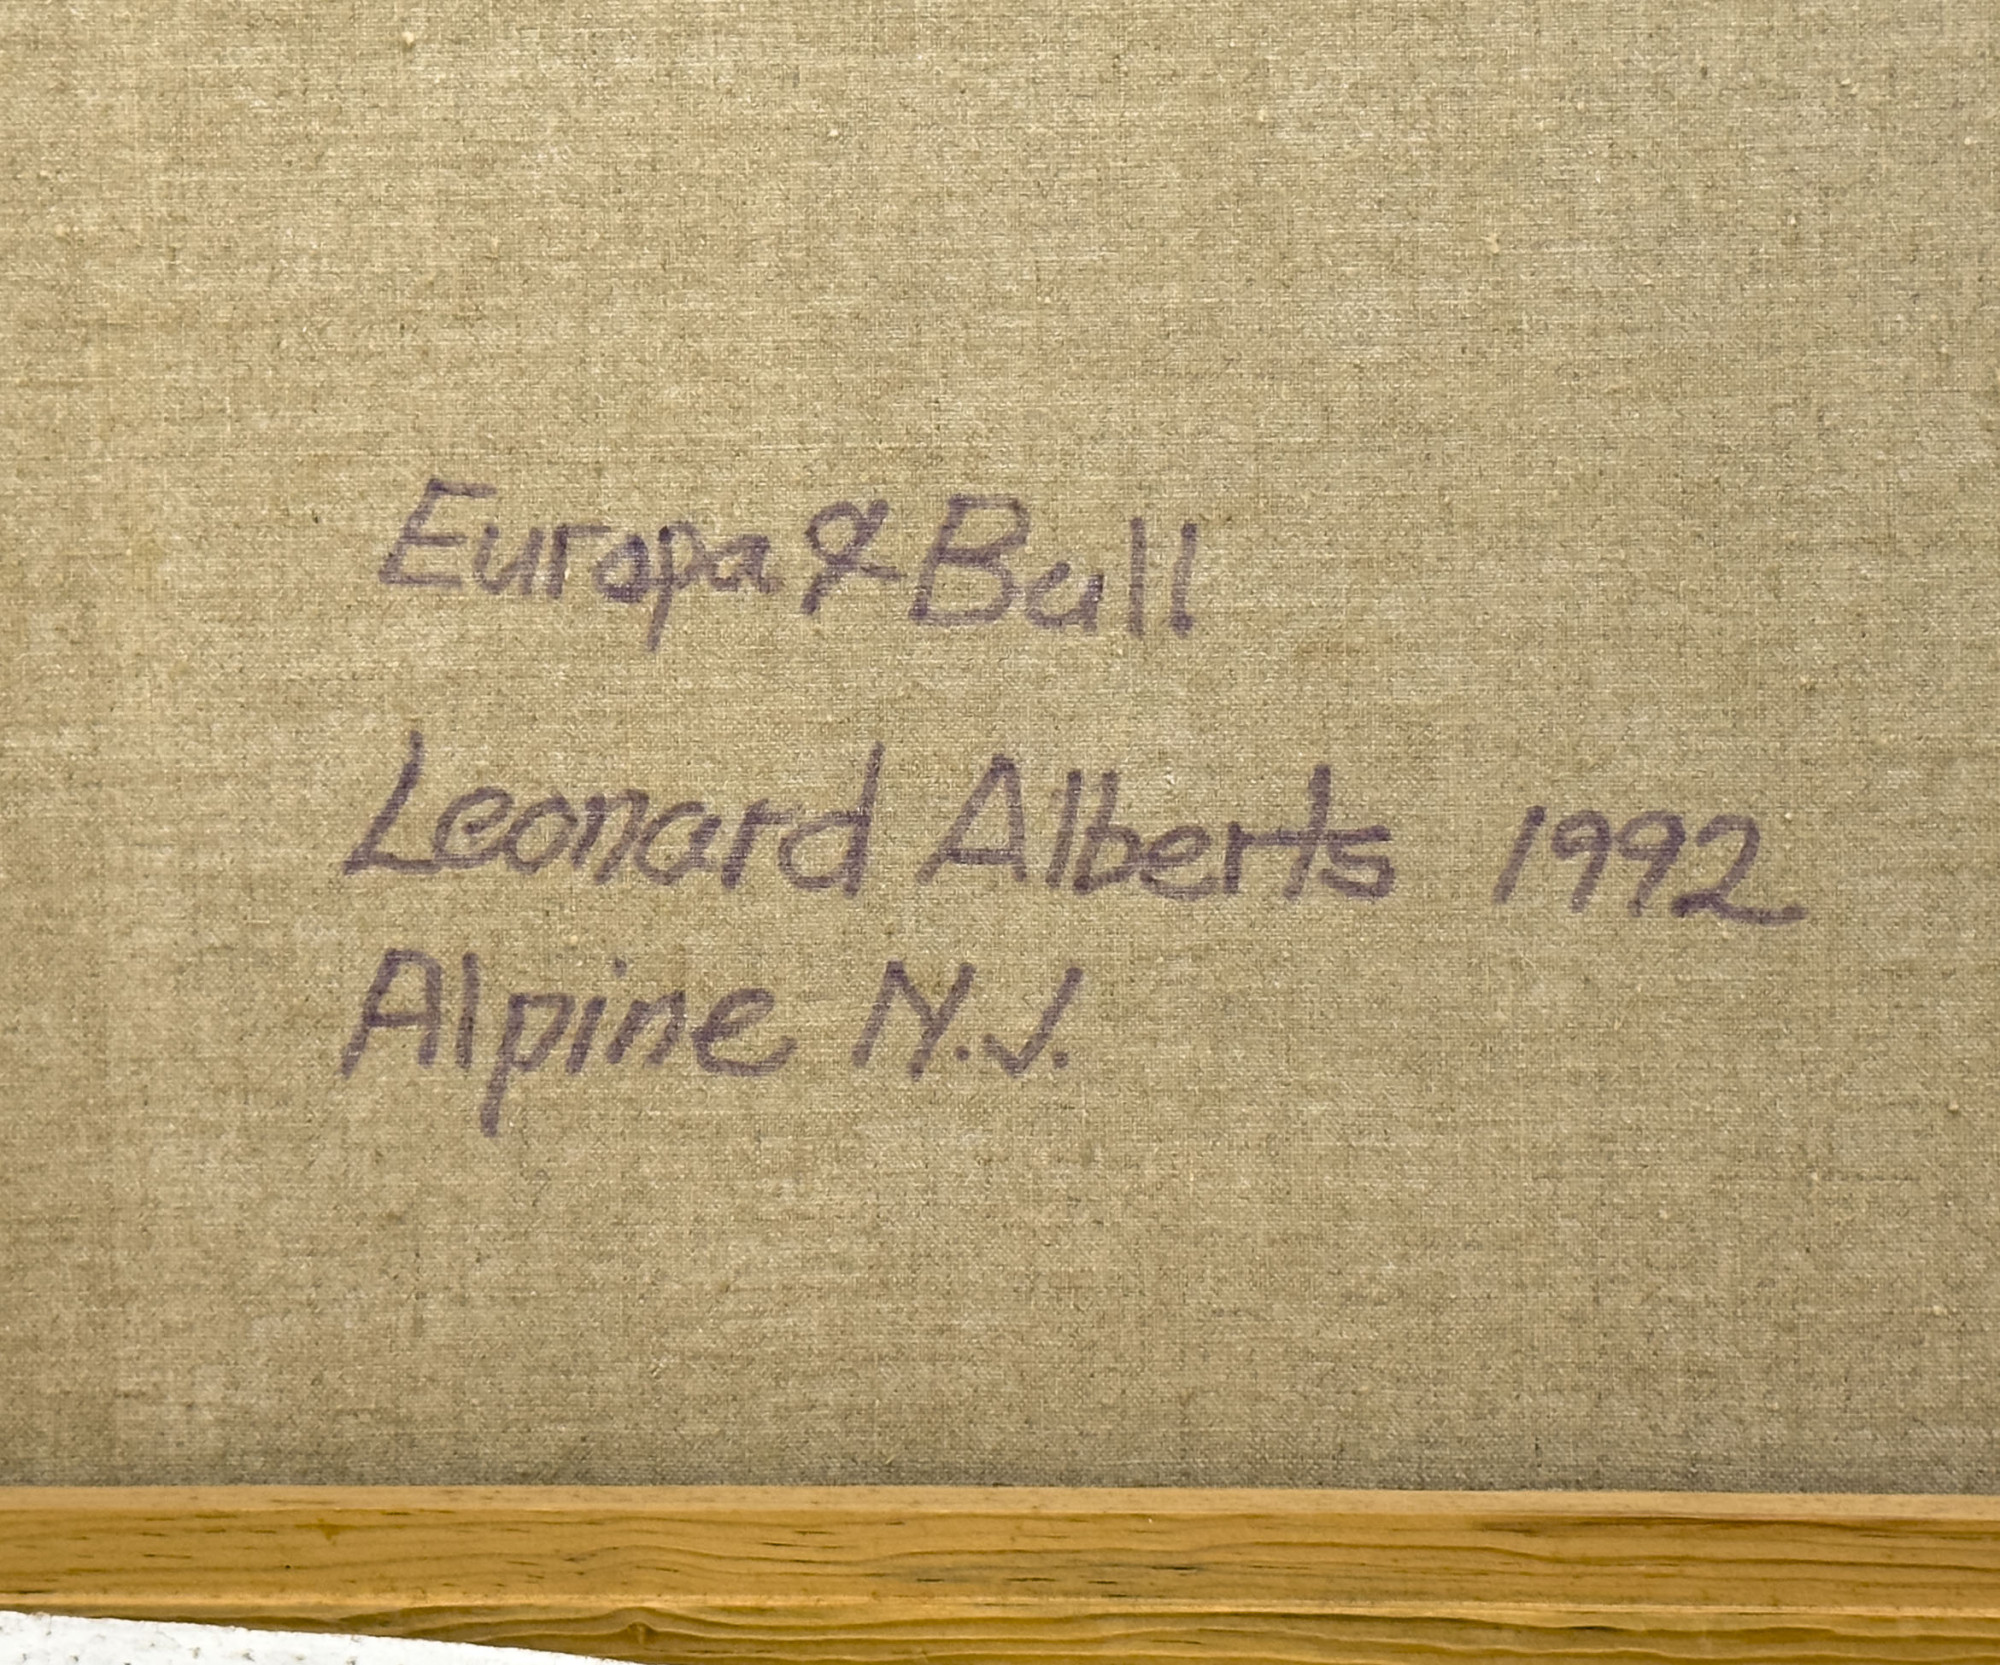 Europa & Bull
Leonard Alberts 1992
Alpine N.J.